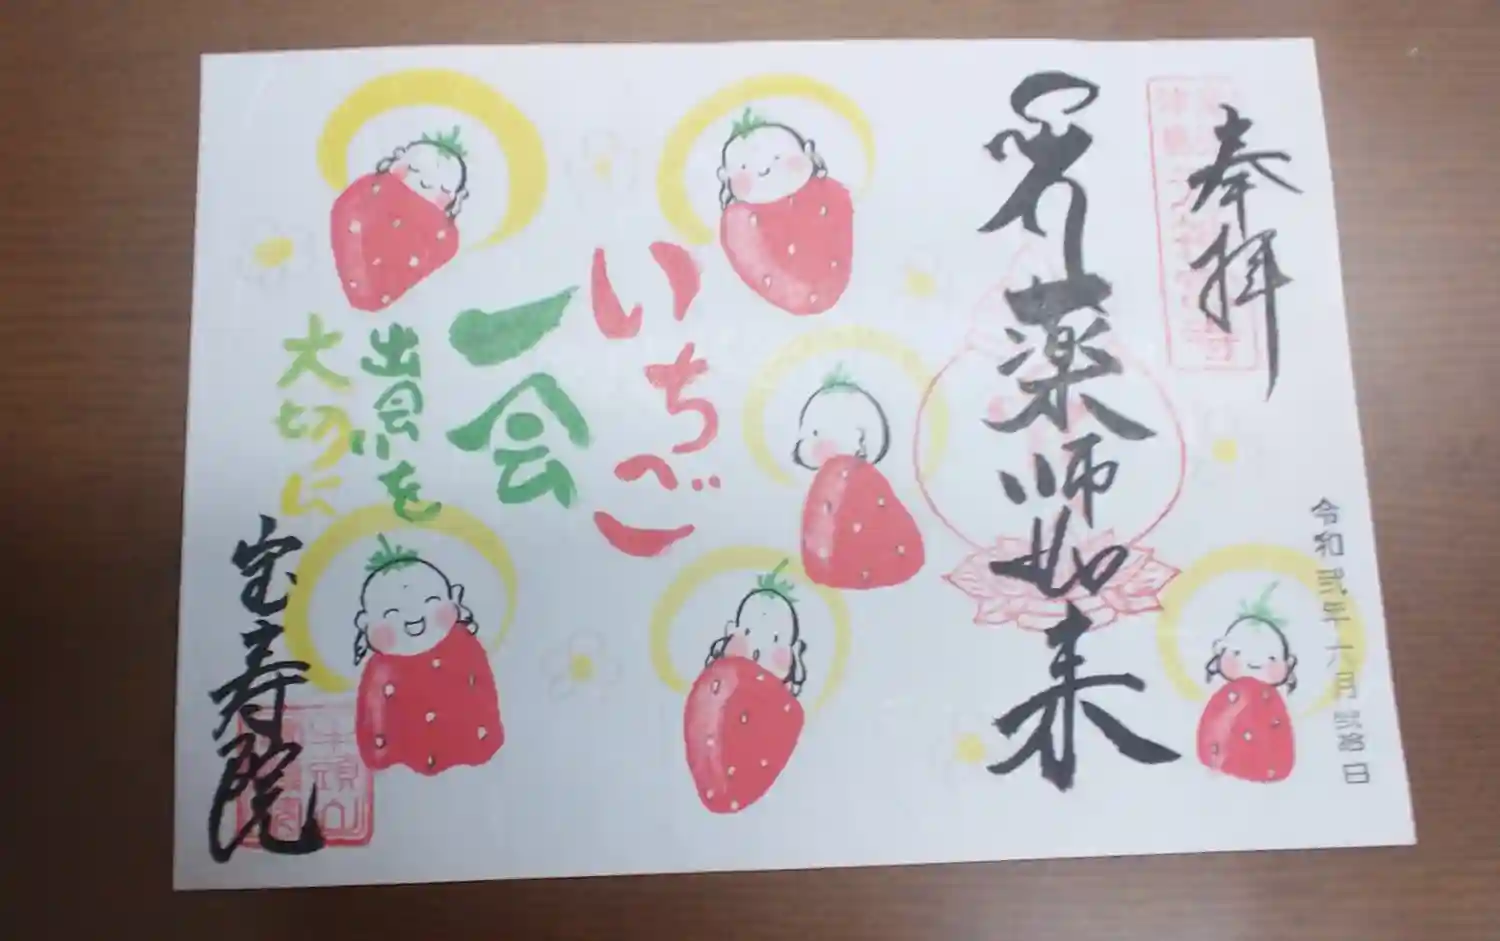 奉拝
令和弐年六月弐拾日
薬師如来
いちご
一会
出会いを
大切に
宝寿院